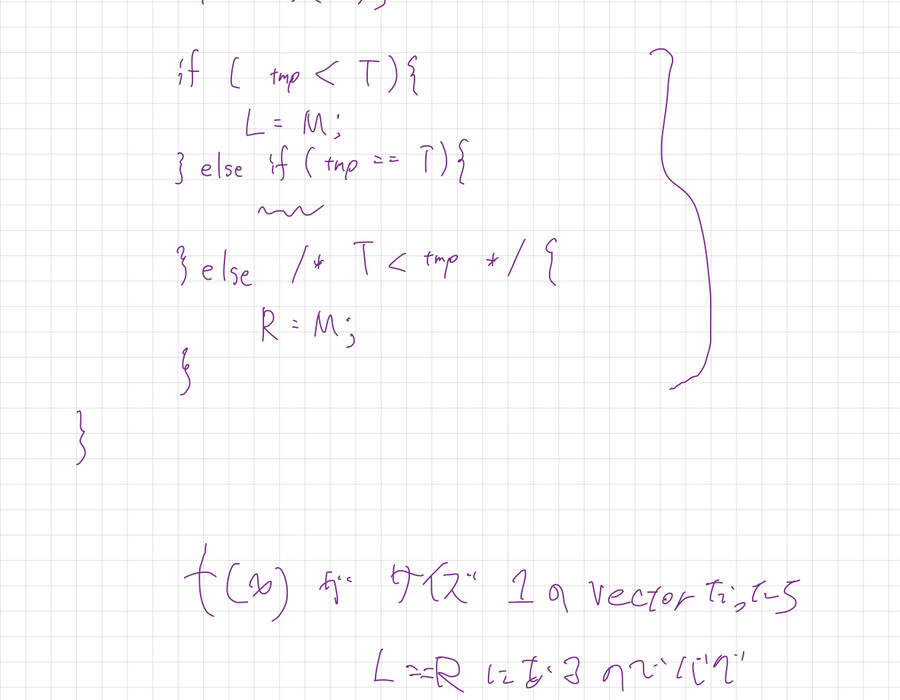 if ( tmp < T){
L = M;
} else if (tmp == T){
} else /* T < tmp */ {
R = M;
}
}
f(x) が サイズ 1 の vector だったら
L==R になるのでバグ